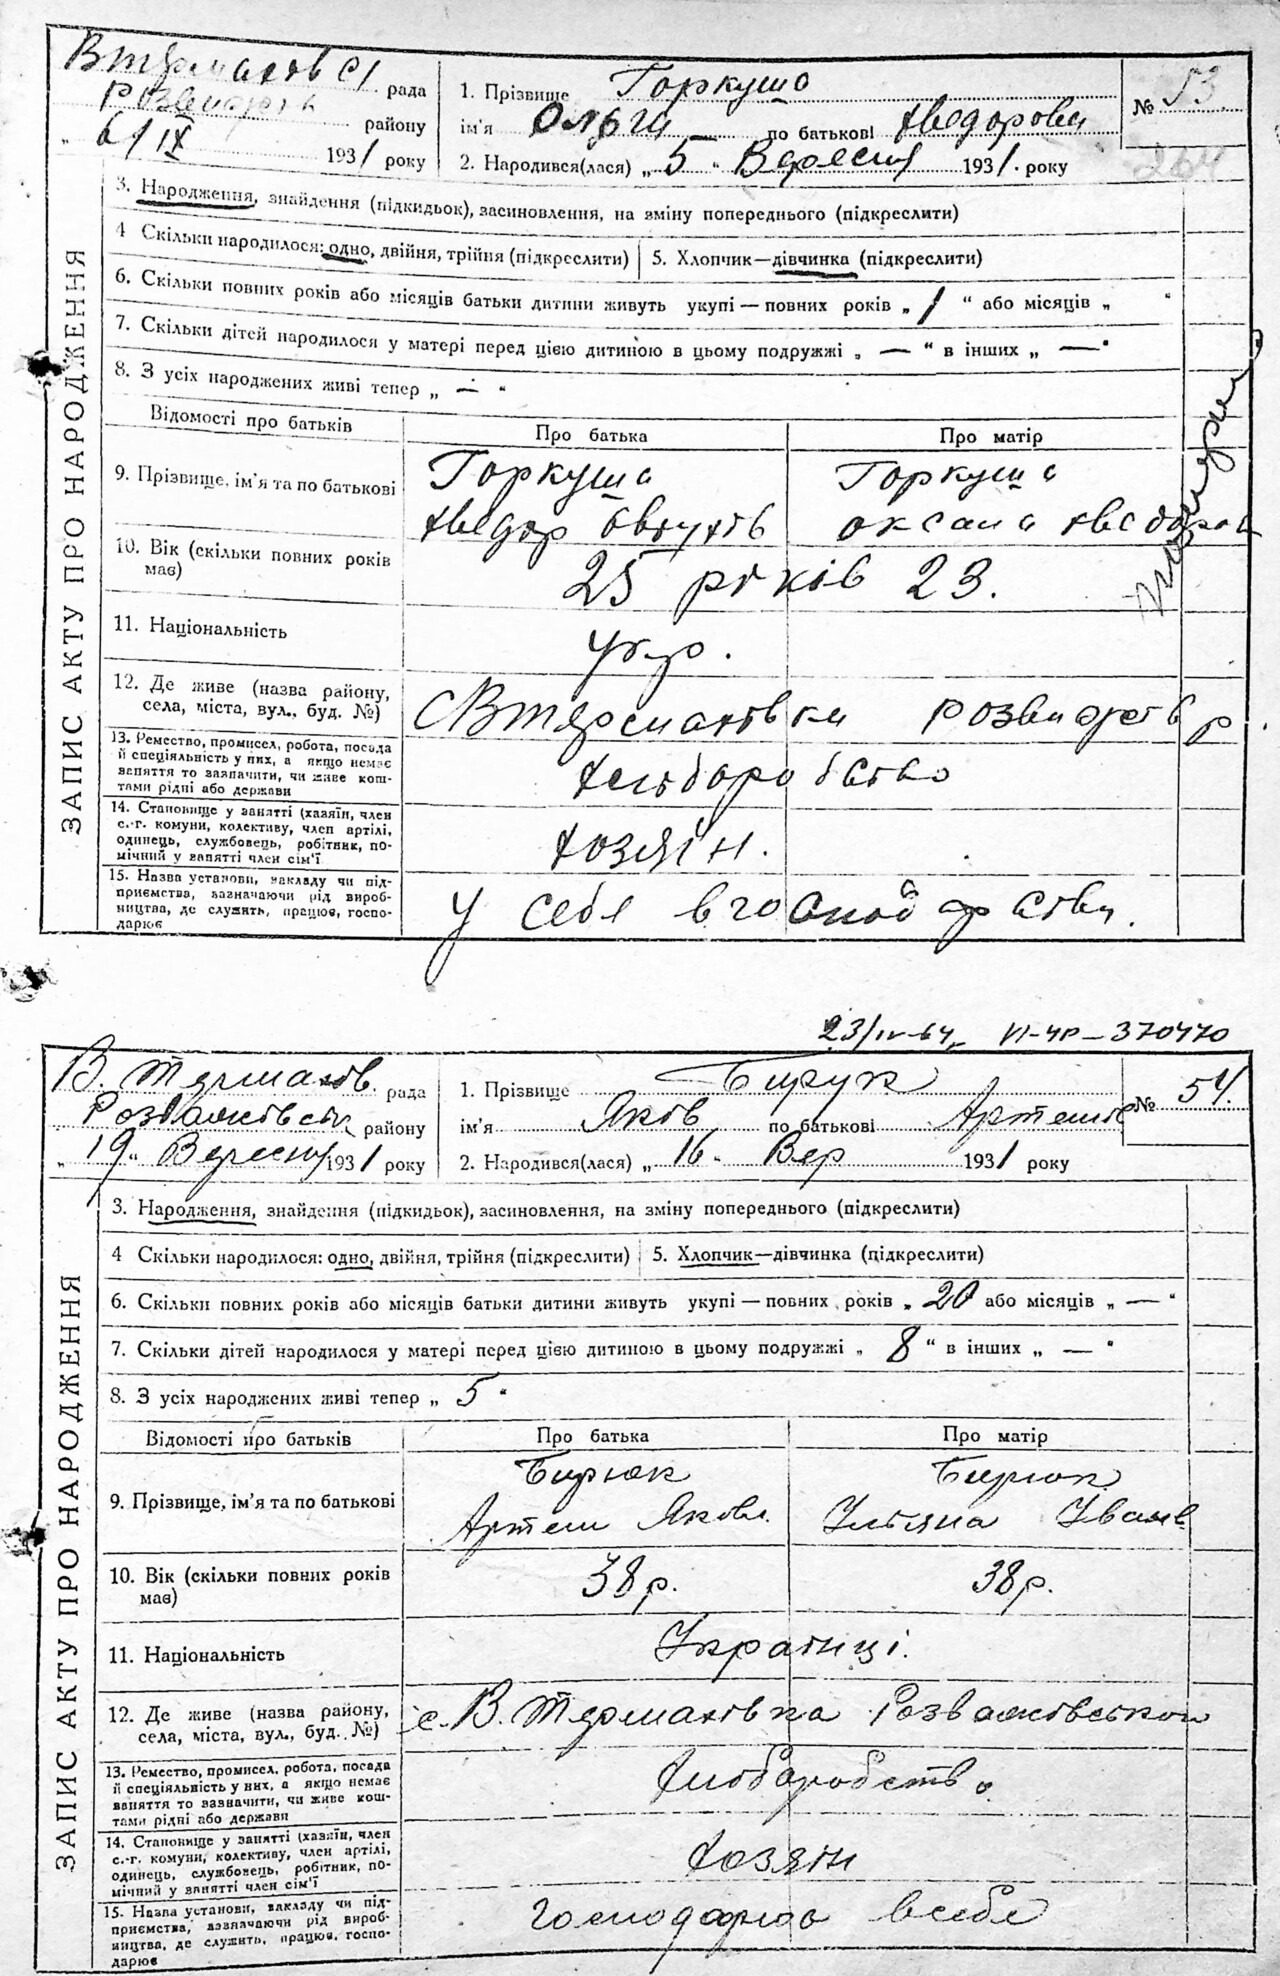 ЗАПИС АКТУ ПРО НАРОДЖЕННЯ
В термахов с/ рада
району
6/IX 1931 року
1. Прізвище Горкуша
ім'я Ольга по батькові Хведорови
2. Народився(лася) „ 5 " Вересня 1931. року
№ 53.
204
3. Народження, знайдення (підкидьок), засиновлення, на зміну попереднього (підкреслити)
4 Скільки народилося: одно, двійня, трійня (підкреслити) 5. Хлопчик—дівчинка (підкреслити)
6. Скільки повних років або місяців батьки дитини живуть укупі — повних років „ 1 " або місяців „ "
7. Скільки дітей народилося у матері перед цією дитиною в цьому подружжі „ — " в інших „ — "
8. З усіх народжених живі тепер „ — "
Відомості про батьків Про батька Про матір
9. Прізвище, ім'я та по батькові Горкуша Горкуша
Хведор Оксана Хведоров
10. Вік (скільки повних років має) 25 років 23.
11. Національність укр.
12. Де живе (назва району, села, міста, вул., буд. №) с В термаховка р
13. Ремество, промисел, робота, посада й спеціяльність у них, а якщо немає заняття то зазначити, чи живе коштами рідні або держави Хліборобство
14. Становище у занятті (хазяїн, член с.-г. комуни, колективу, член артілі, одинець, службовець, робітник, помічний у занятті член сім'ї Хозяїн.
15. Назва установи, закладу чи підприємства, зазначаючи рід виробництва, де служить, працює, господарює у себе в господарстви.
23/IV-64 VI-ЧР-370470
ЗАПИС АКТУ ПРО НАРОДЖЕННЯ
В. Термахов. рада
Розважівськ району
„ 19 " Вересня 1931 року
1. Прізвище Бирук
ім'я Яків по батькові Артемів
2. Народився(лася) „ 16 " Вер 1931 року
№ 54.
3. Народження, знайдення (підкидьок), засиновлення, на зміну попереднього (підкреслити)
4 Скільки народилося: одно, двійня, трійня (підкреслити) 5. Хлопчик—дівчинка (підкреслити)
6. Скільки повних років або місяців батьки дитини живуть укупі — повних років „ 20 або місяців „ — "
7. Скільки дітей народилося у матері перед цією дитиною в цьому подружжі „ 8 " в інших „ — "
8. З усіх народжених живі тепер „ 5 "
Відомості про батьків Про батька Про матір
9. Прізвище, ім'я та по батькові Бирюк Бирюк
Артем Яковл. Уляна Іванів
10. Вік (скільки повних років має) 38 р. 38 р.
11. Національність Українці.
12. Де живе (назва району, села, міста, вул., буд. №) с. В. Термахівка Розважівського
13. Ремество, промисел, робота, посада й спеціяльність у них, а якщо немає заняття то зазначити, чи живе коштами рідні або держави Хліборобство
14. Становище у занятті (хазяїн, член с.-г. комуни, колективу, член артілі, одинець, службовець, робітник, помічний у занятті член сім'ї Хозяїн
15. Назва установи, закладу чи підприємства, зазначаючи рід виробництва, де служить, працює, господарює господарює в себе